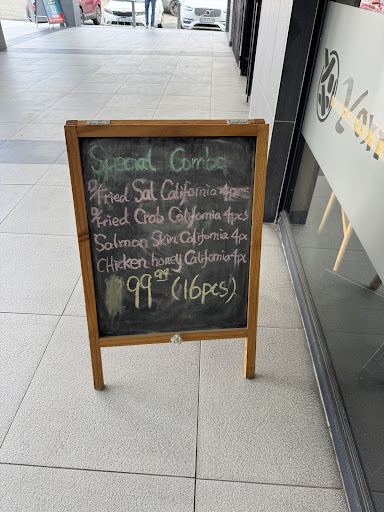 Special Combo
D/Fried Sal California 4pcs
D/Fried Crab California 4pcs
Salmon Skin California 4pc
CHicken honey California 4pc
R199.99 (16pcs)